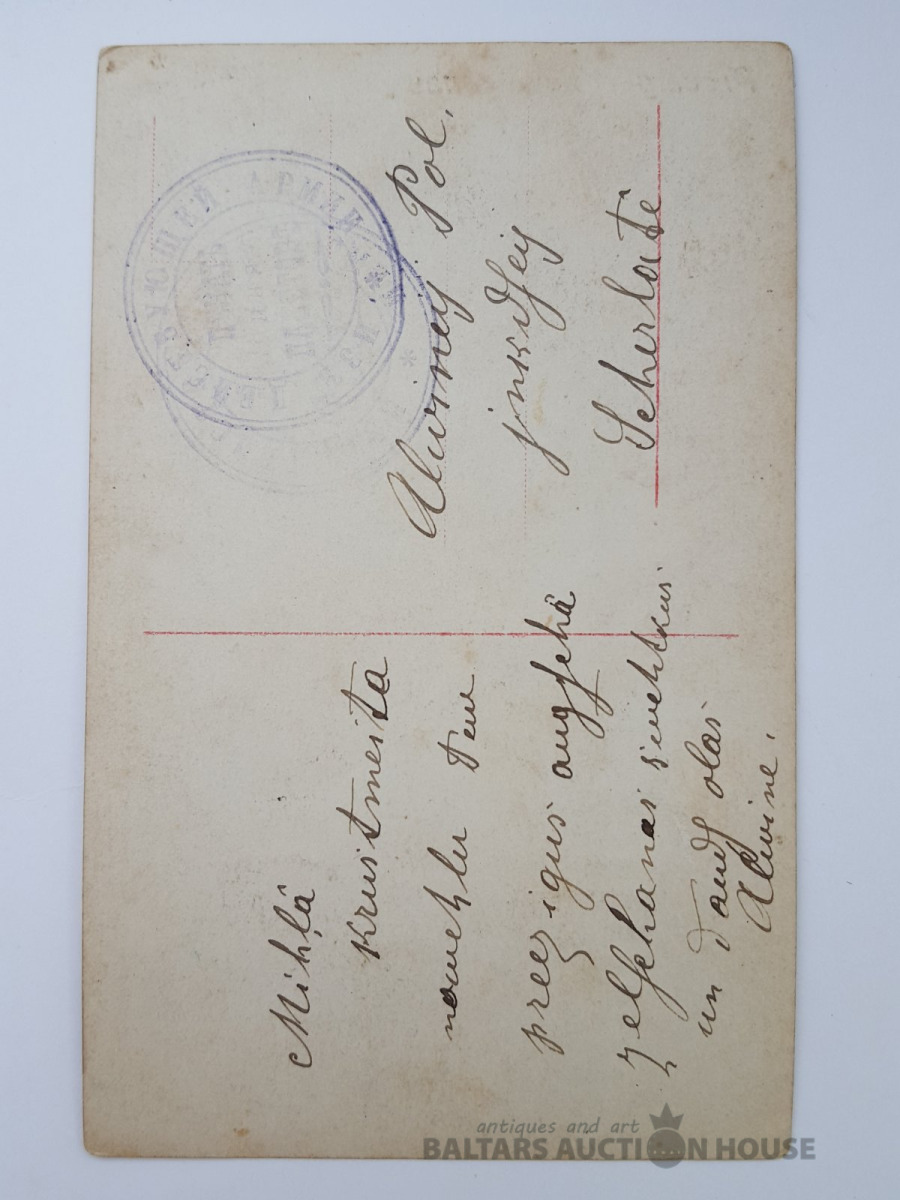 Mihļâ
krustmeita
nowehlu Tew
preezigus augschâ
zelschanas swehtkus
un daudz olas
Alwine.
Alwinei Pol.
Scherlotê
ИЗЪ ДѢЙСТВУЮЩЕЙ АРМІИ
antiques and art
BALTARS AUCTION HOUSE